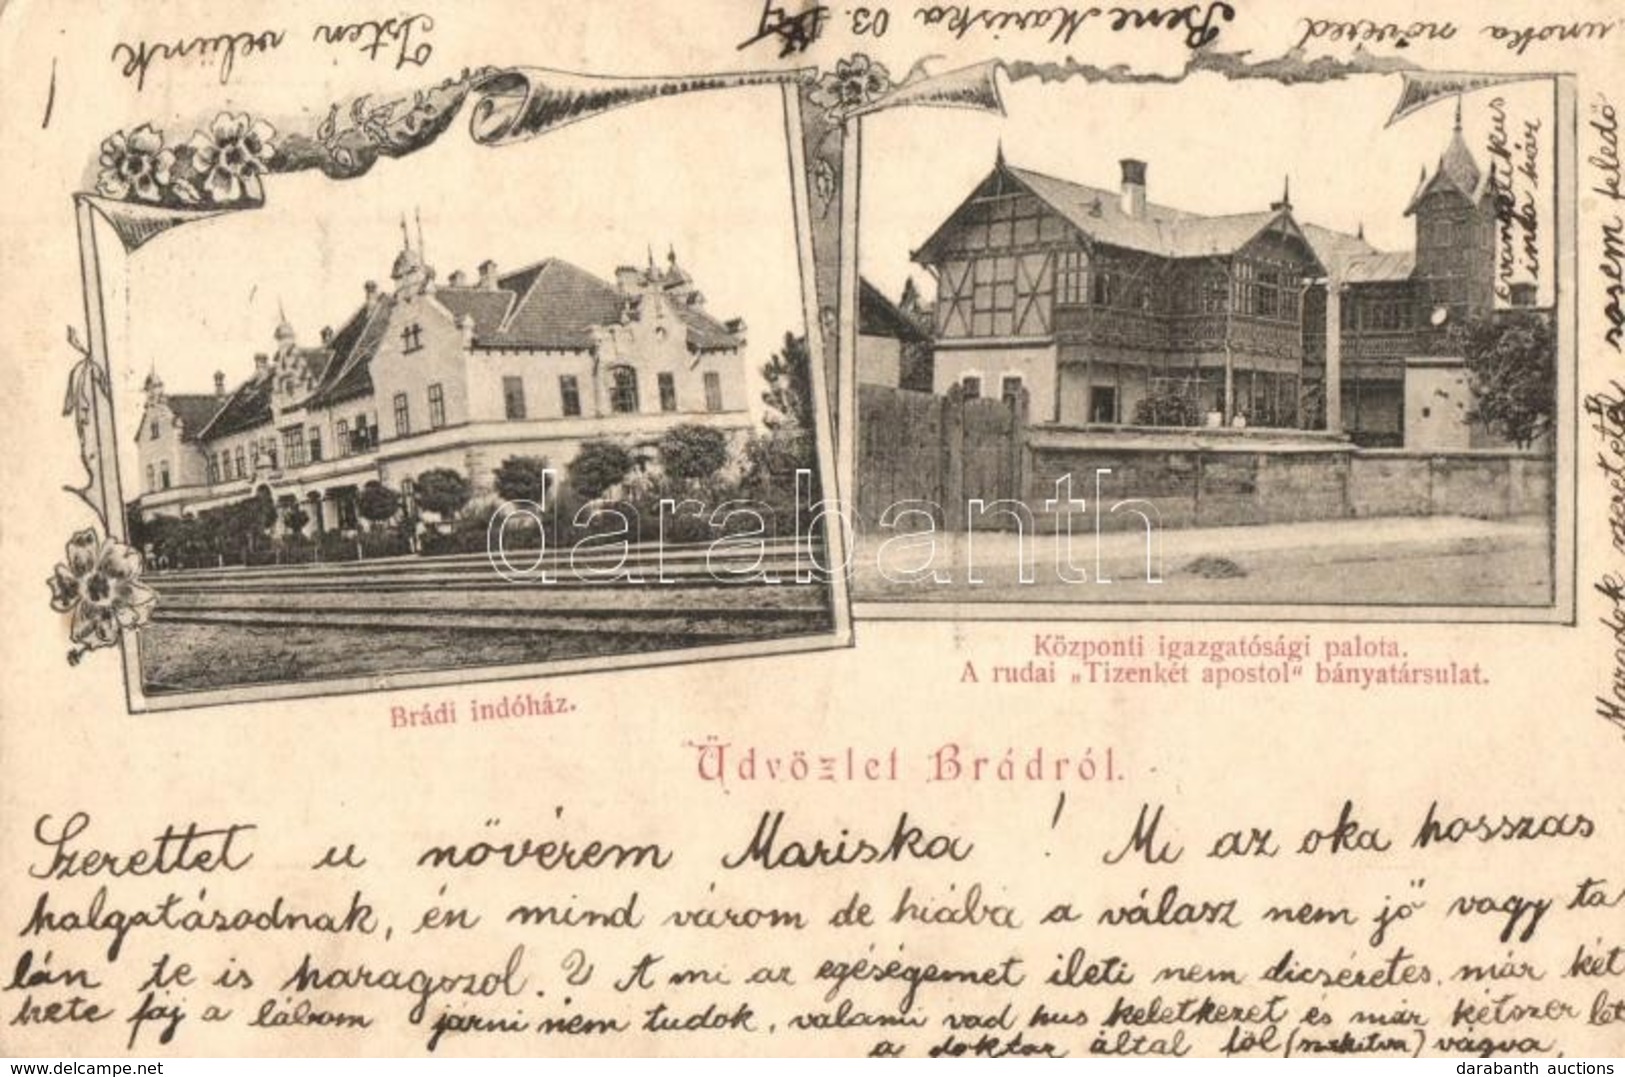 Isten velünk
Bene Mariska 03.
unoka nővéred
Brádi indóház.
Központi igazgatósági palota.
A rudai „Tizenkét apostol" bányatársulat.
Üdvözlet Brádról.
Szerettet u növérem Mariska! Mi az oka hosszas
halgatásodnak, én mind várom de hiába a válasz nem jő vagy ta
lán te is haragszol.? A mi az egéségemet ileti nem dicséretes már két
hete fáj a lábom járni nem tudok, valami vad hus keletkezet és már kétszer let
a doktor által föl (metva) vágva,
Maradok szeretö rosem feledő
evangelikus
darabanth
darabanth auctions